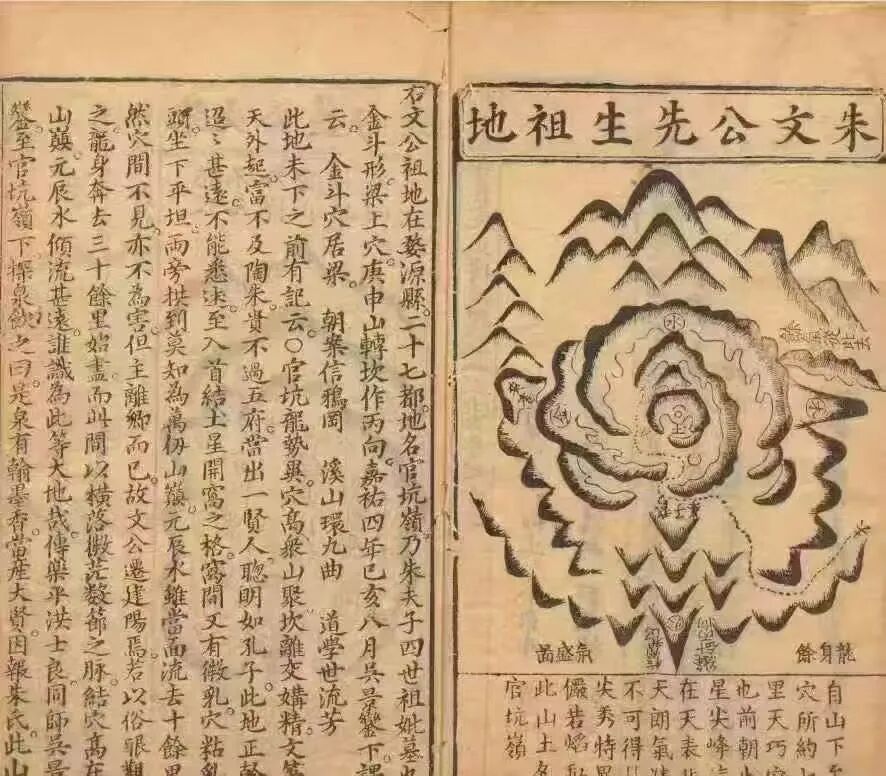 朱文公先生祖地
水
金
土
木
火
龍身餘
氣盛茁
自山下
穴所約
里天巧
也前朝
星尖峰
在天表
天朗氣
不可得
尖秀特
儼若熖
此山土名
官坑嶺
右文公祖地在婺源縣二十七都地名官坑嶺乃朱夫子四世祖妣墓也
金斗形梁上穴庚申山轉坎作丙向嘉祐四年己亥八月吳景鸞下課
云 金斗穴居梁 朝案信鴉岡 溪山環九曲 道學世流芳
此地未下之前有記云○官坑龍勢異穴高衆山聚坎離交媾精文筆
天外起富不及陶朱貴不過五府當出一賢人聰明如孔子此地正幹
迢〻甚遠不能悉述至入首結土星開窩之格窩間又有微乳穴粘乳
頭坐下平坦兩旁拱到莫知為萬仞山巔元辰水雖當面流去十餘里
然穴間不見亦不為害但主離鄉而已故文公遷建陽焉若以俗眼觀
之龍身奔去三十餘里始盡而此間以橫落微茫數節之脉結穴高在
山巔元辰水傾流甚遠誰識為此等大地哉傳樂平洪士良同師吳景
鸞至官坑嶺下泉飲之曰是泉有翰墨香當產大賢因報朱氏此山